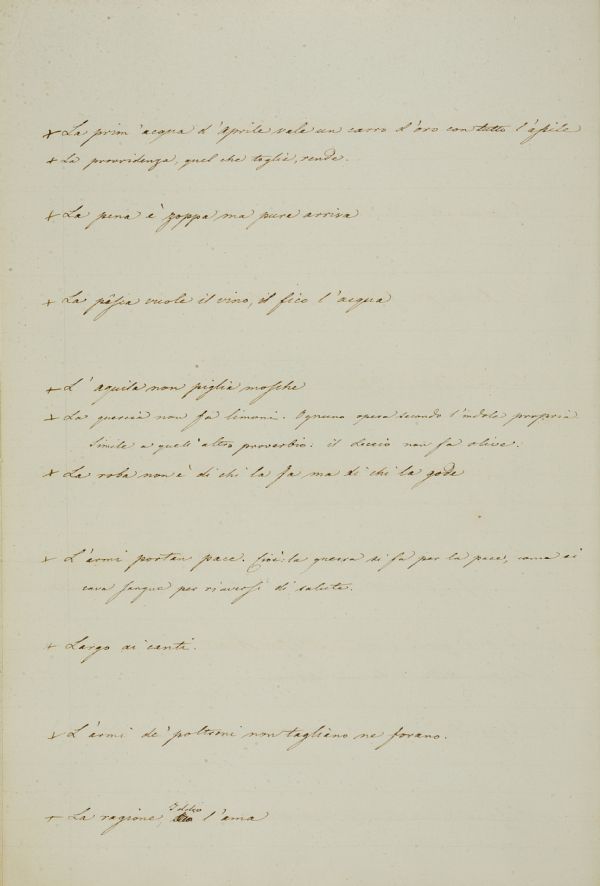 + La prim'acqua d'Aprile vale un carro d'oro con tutto l'assile
+ La provvidenza, quel che toglie, rende.
+ La pena è zoppa ma pure arriva
+ La pêsca vuole il vino, il fico l'acqua
+ L'aquila non piglia mosche
+ La quercia non fa limoni. Ognuno opera secondo l'indole propria
Simile a quell'altro proverbio: il Leccio non fa olive.
+ La roba non è di chi la fa ma di chi la gode
+ L'armi portan pace. Cioè: la guerra si fa per la pace, come si
cava sangue per riaversi di salute.
+ Largo ai canti.
+ L'armi de' poltroni non tagliano ne forano.
+ La ragione, Iddio l'ama